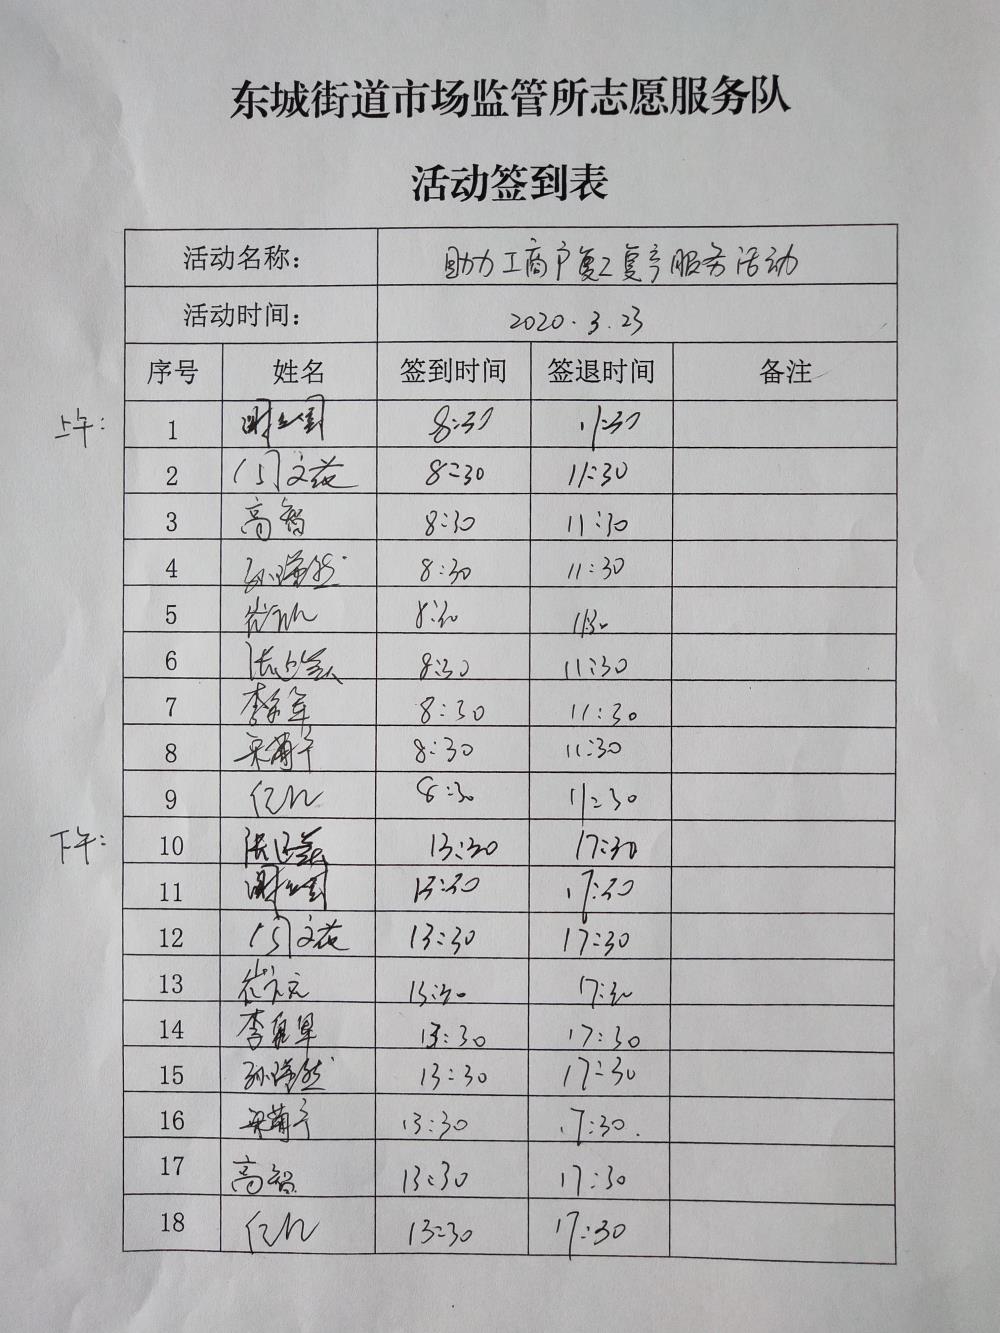 东城街道市场监管所志愿服务队
活动签到表
活动名称： 助力工商户复工复产服务活动
活动时间： 2020.3.23
序号 姓名 签到时间 签退时间 备注
上午：
1 8:30 11:30
2 闫文花 8:30 11:30
3 高智 8:30 11:30
4 孙瑞然 8:30 11:30
5 8:30 11:30
6 8:30 11:30
7 8:30 11:30
8 8:30 11:30
9 8:30 11:30
下午：
10 13:30 17:30
11 13:30 17:30
12 闫文花 13:30 17:30
13 13:30 17:30
14 13:30 17:30
15 孙瑞然 13:30 17:30
16 13:30 17:30
17 高智 13:30 17:30
18 13:30 17:30